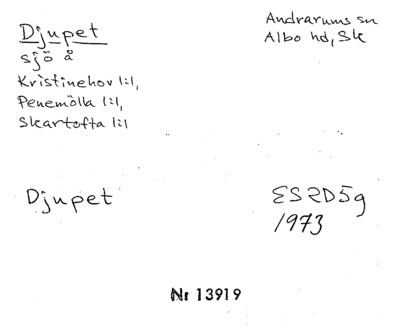 Djupet
sjö å
Kristinehov 1:1,
Penemölla 1:1,
Skartofta 1:1
Andrarums sn
Albo hd, Sk
Djupet
ES 2D5g
1973
Nr 13919